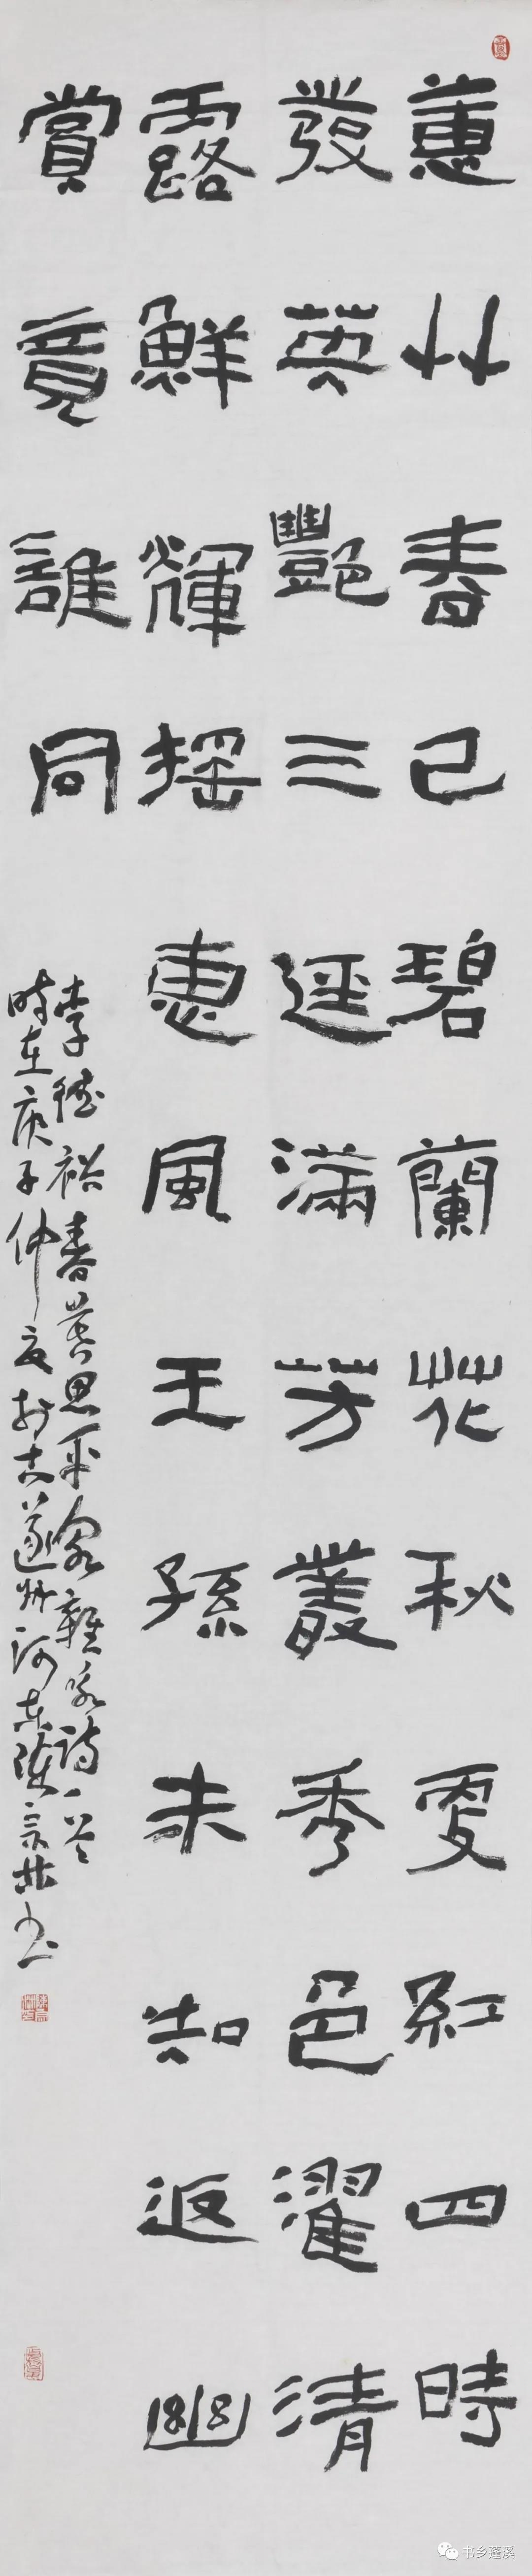 蕙艸春已碧蘭花秋更紅四時
發英艷三逕滿芳叢秀色濯清
露鮮輝摇惠風王孫未知返幽
賞竟誰同
李德裕春暮思平泉雜詠詩一首
時在庚子仲夏於古遂州河東陳宗林书
书乡蓬溪